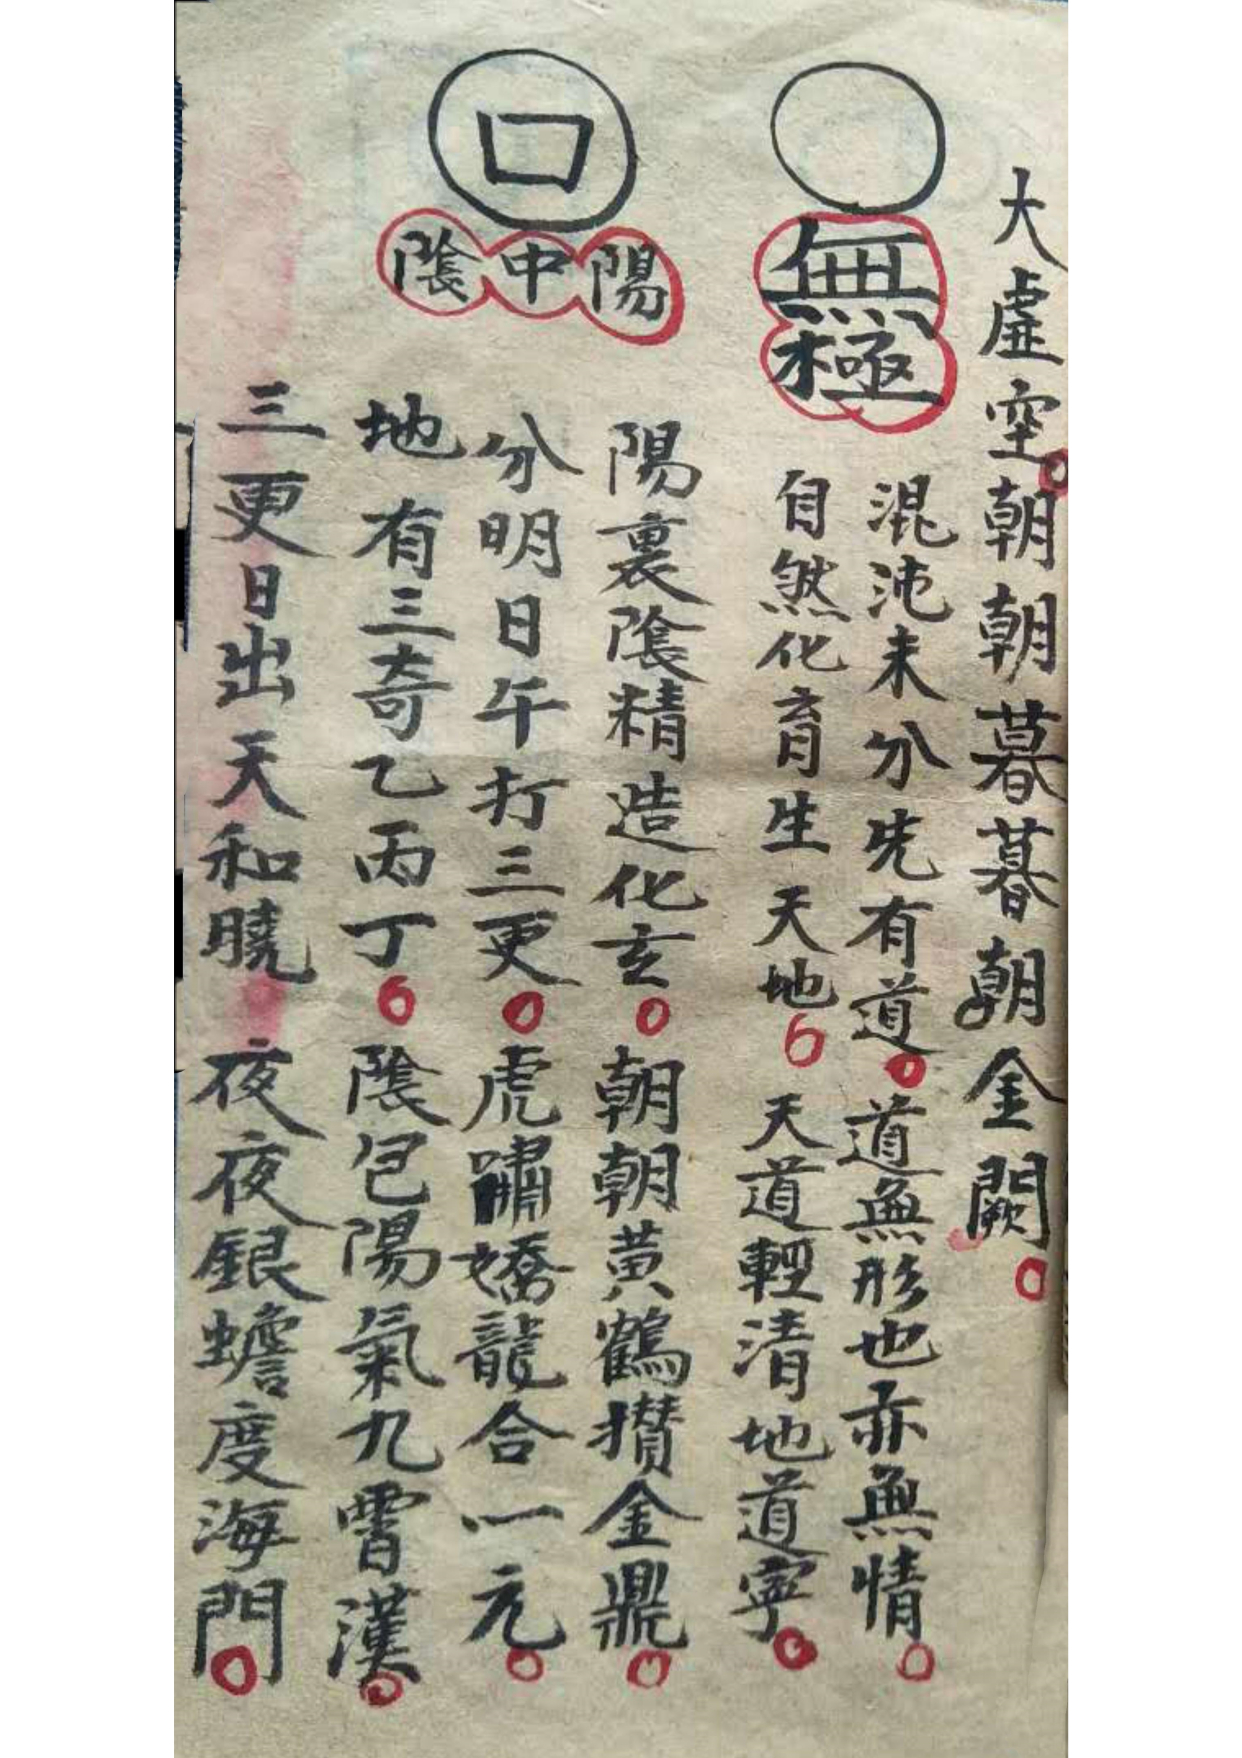 大虛空朝朝暮暮朝金闕
無極
混沌未分先有道道無形也亦無情
自然化育生天地天道輕清地道寧
口
陽中陰
陽裏陰精造化玄朝朝黃鶴攢金鼎
分明日午打三更虎嘯嬌龍合一元
地有三奇乙丙丁陰包陽氣九霄漢
三更日出天和曉夜夜銀蟾度海門